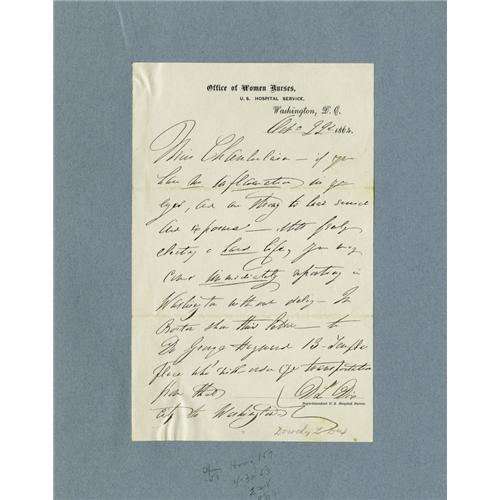 Office of Women Nurses,
U. S. HOSPITAL SERVICE.
Washington, D. C.
22d 1864.
Miss Chamberlain – if you
have no inflammation in yr
eyes, are strong to bear
and exposure –
a hard life, you may
come immediately reporting in
Washington without delay – In
Boston show this letter – to
Dr George Hayward 13 – Temple
place who will order yr transportation
from that
city to Washington
D. L. Dix
Superintendent U. S. Hospital Nurses.
Dorothy L Dix